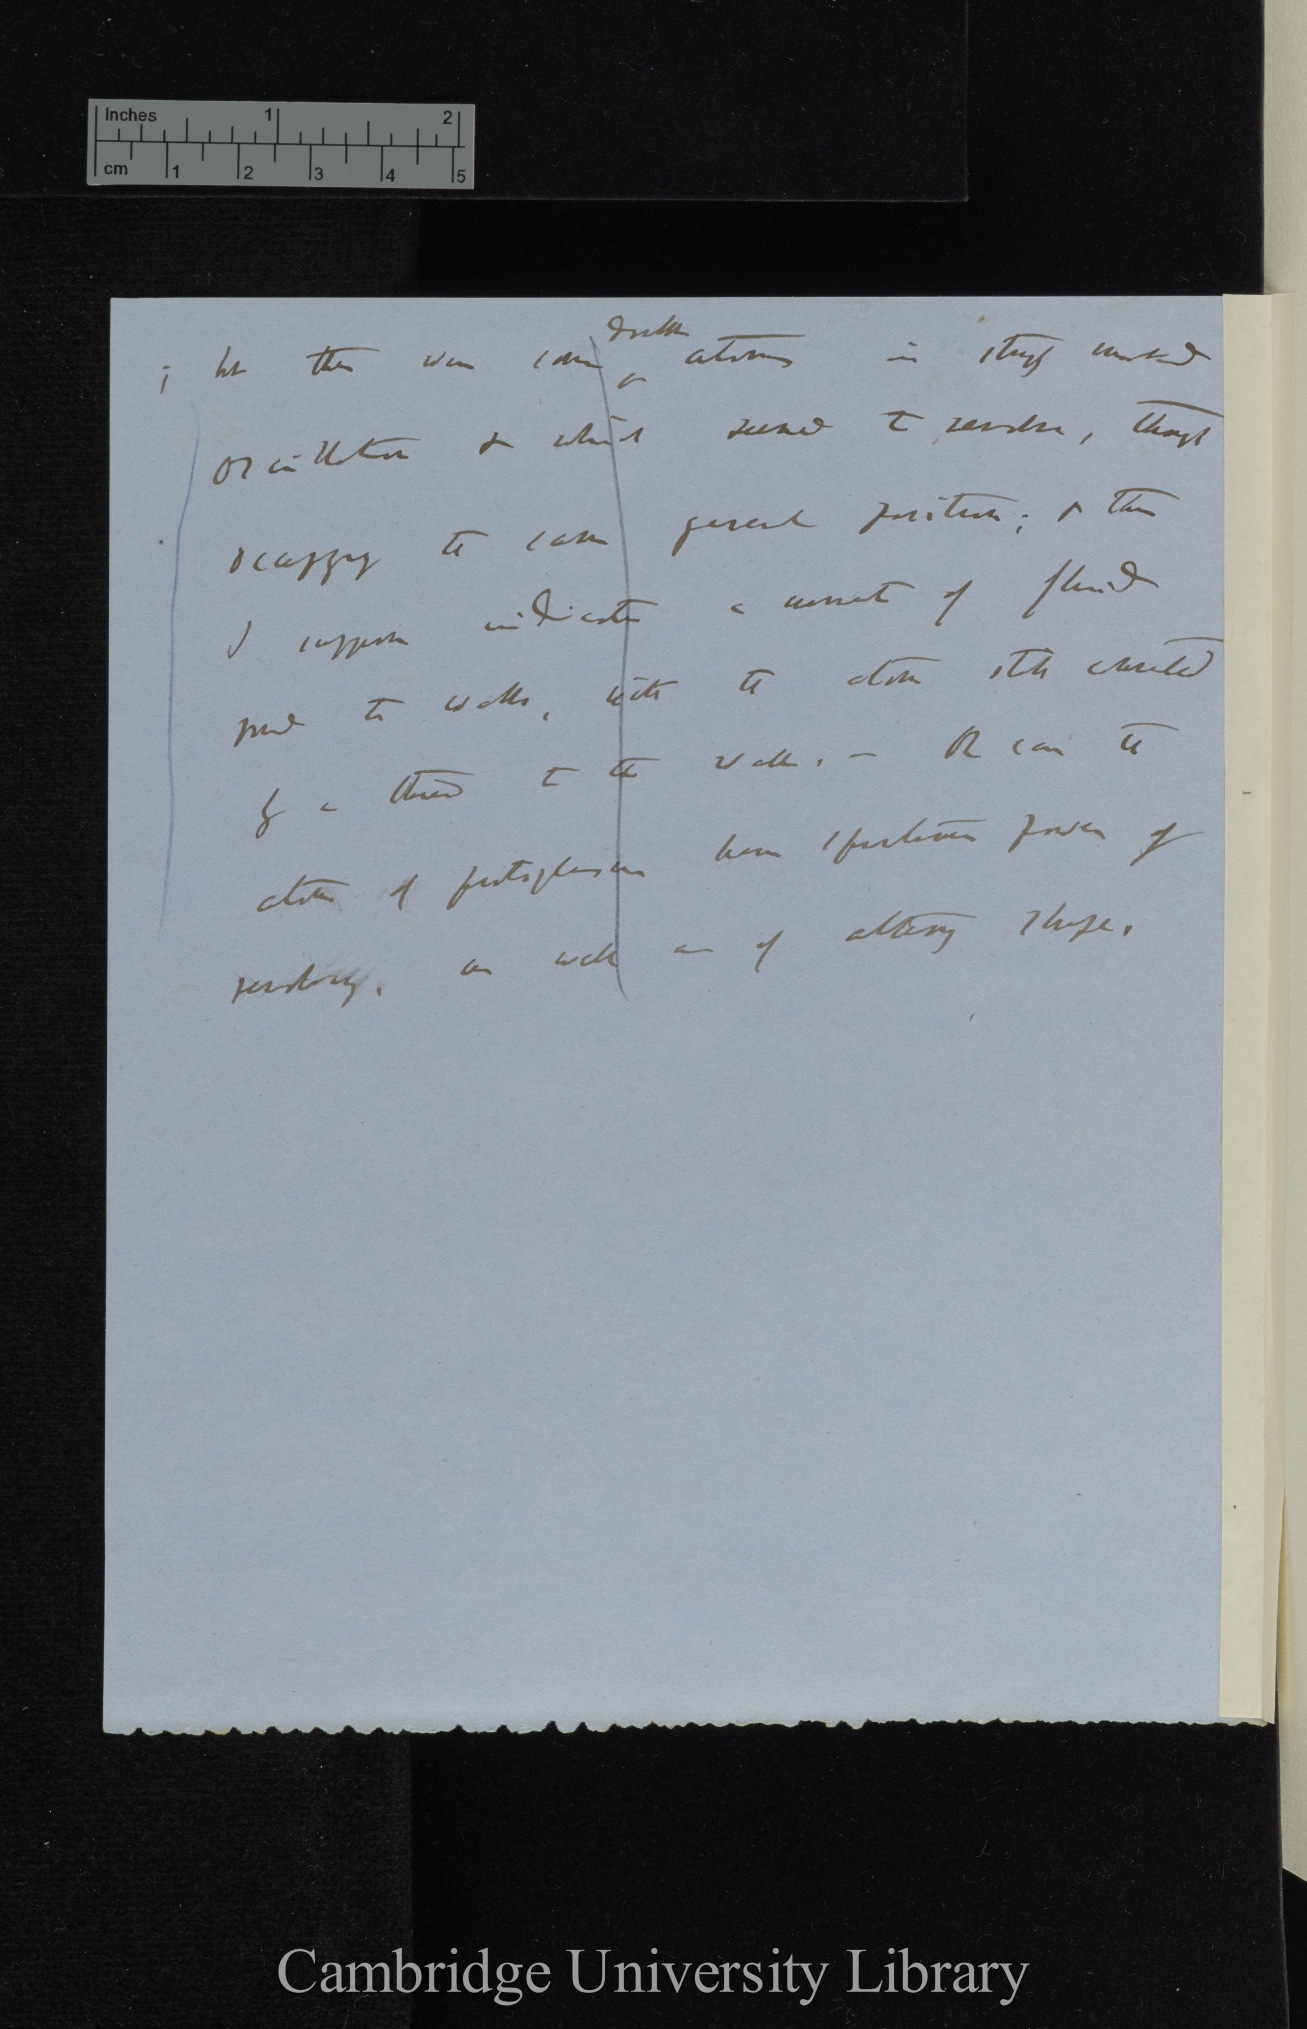 Inches 1 2
cm 1 2 3 4 5
; but there were some double atoms in strongly marked
oscillation & which seemed to revolve, though
occupying the same general position; & this
I suppose indicates a current of fluid
the walls, with the atoms still attached
by a thread to the walls. — Or can the
atoms of protoplasm have spontaneous power of
revolving, as well as of altering shape.
Cambridge University Library